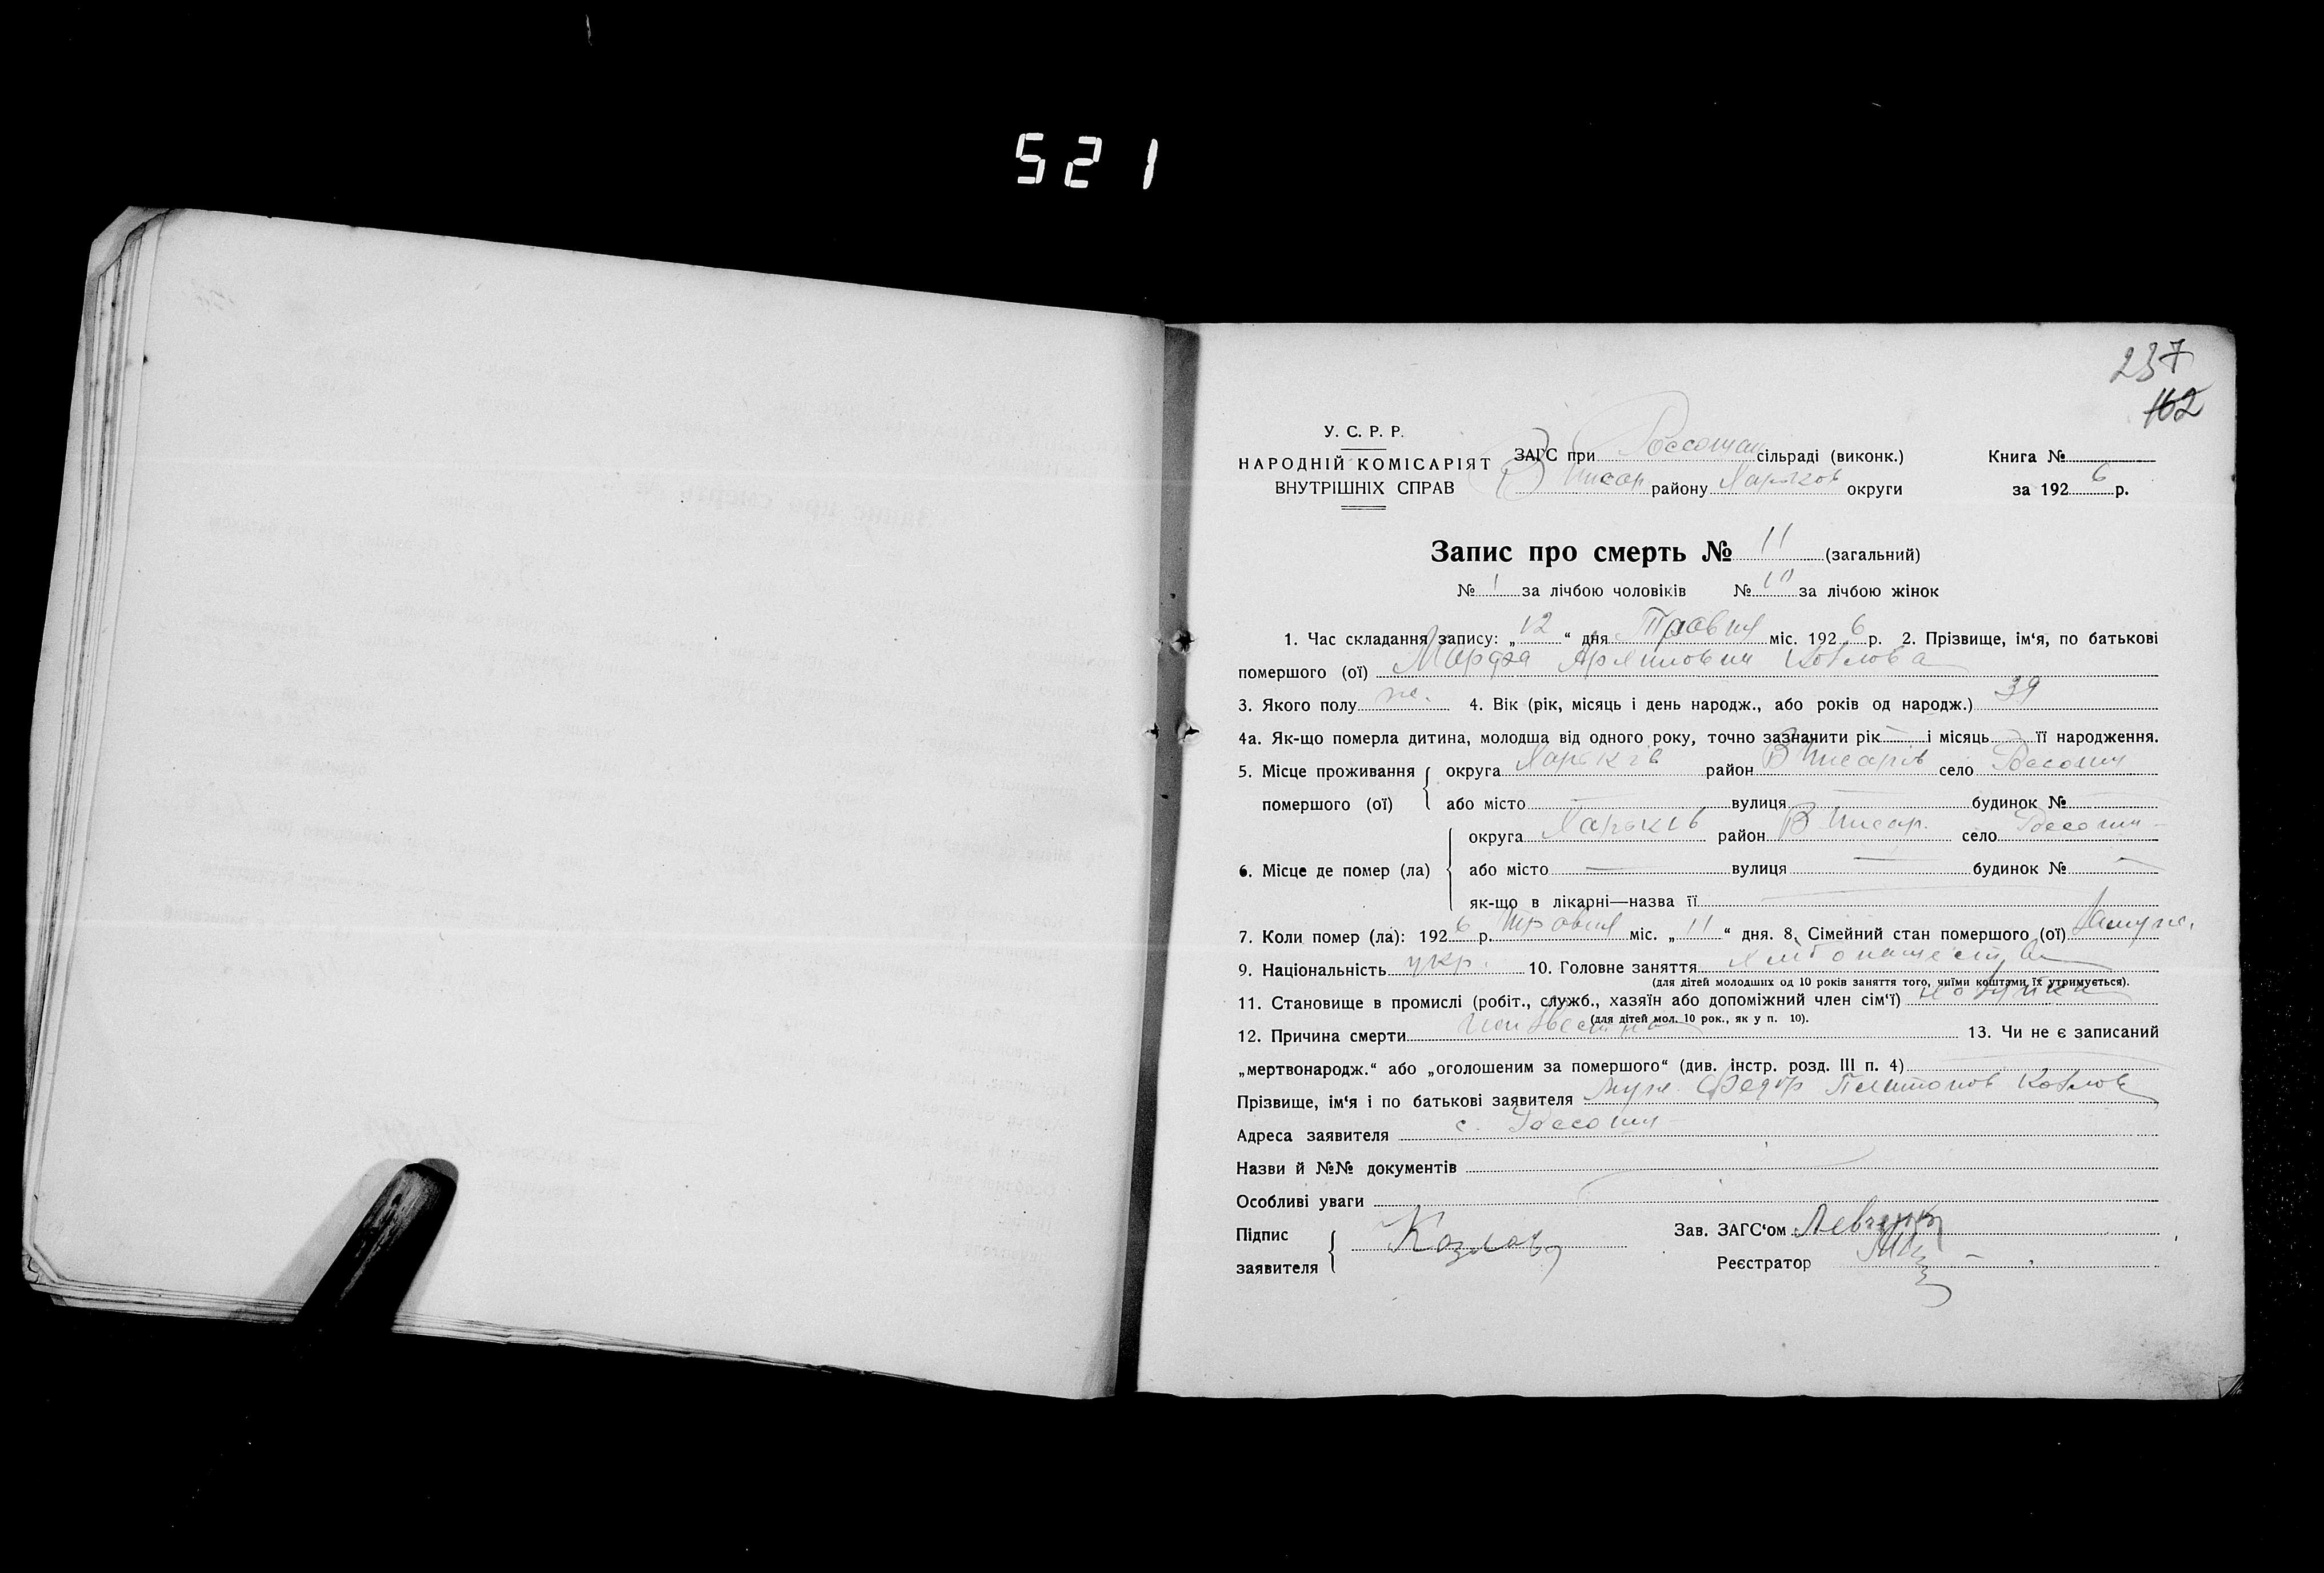 521
237
162
У. С. Р. Р.
НАРОДНІЙ КОМІСАРІЯТ
ВНУТРІШНІХ СПРАВ
ЗАГС при Россошан сільраді (виконк.)
В Писар району Харьков округи
Книга №
за 1926 р.
Запис про смерть № 11 (загальний)
№ 1 за лічбою чоловіків № 10 за лічбою жінок
1. Час складання запису: „12“ дня Травня міс. 1926 р. 2. Прізвище, ім‘я, по батькові
помершого (ої) Козлова
3. Якого полу ж. 4. Вік (рік, місяць і день народж., або років од народж.) 39
4а. Як-що померла дитина, молодша від одного року, точно зазначити рік — і місяць — її народження.
5. Місце проживання помершого (ої) округа Харьків район В Писарів село
або місто — вулиця — будинок № —
6. Місце де помер (ла) округа Харьків район В Писар. село
або місто — вулиця — будинок № —
як-що в лікарні—назва її —
7. Коли помер (ла): 1926 р. травня міс. „11“ дня. 8. Сімейний стан помершого (ої) Замуж.
9. Національність укр. 10. Головне заняття
(для дітей молодших од 10 років заняття того, чиїми коштами їх утримується).
11. Становище в промислі (робіт., служб., хазяїн або допоміжний член сім‘ї)
(для дітей мол. 10 рок., як у п. 10).
12. Причина смерти 13. Чи не є записаний
„мертвонародж.“ або „оголошеним за помершого“ (див. інстр. розд. III п. 4)
Прізвище, ім‘я і по батькові заявителя муж. Федор Платонов Козлов
Адреса заявителя с.
Назви й №№ документів
Особливі уваги
Підпис заявителя Козлов
Зав. ЗАГС‘ом
Реєстратор